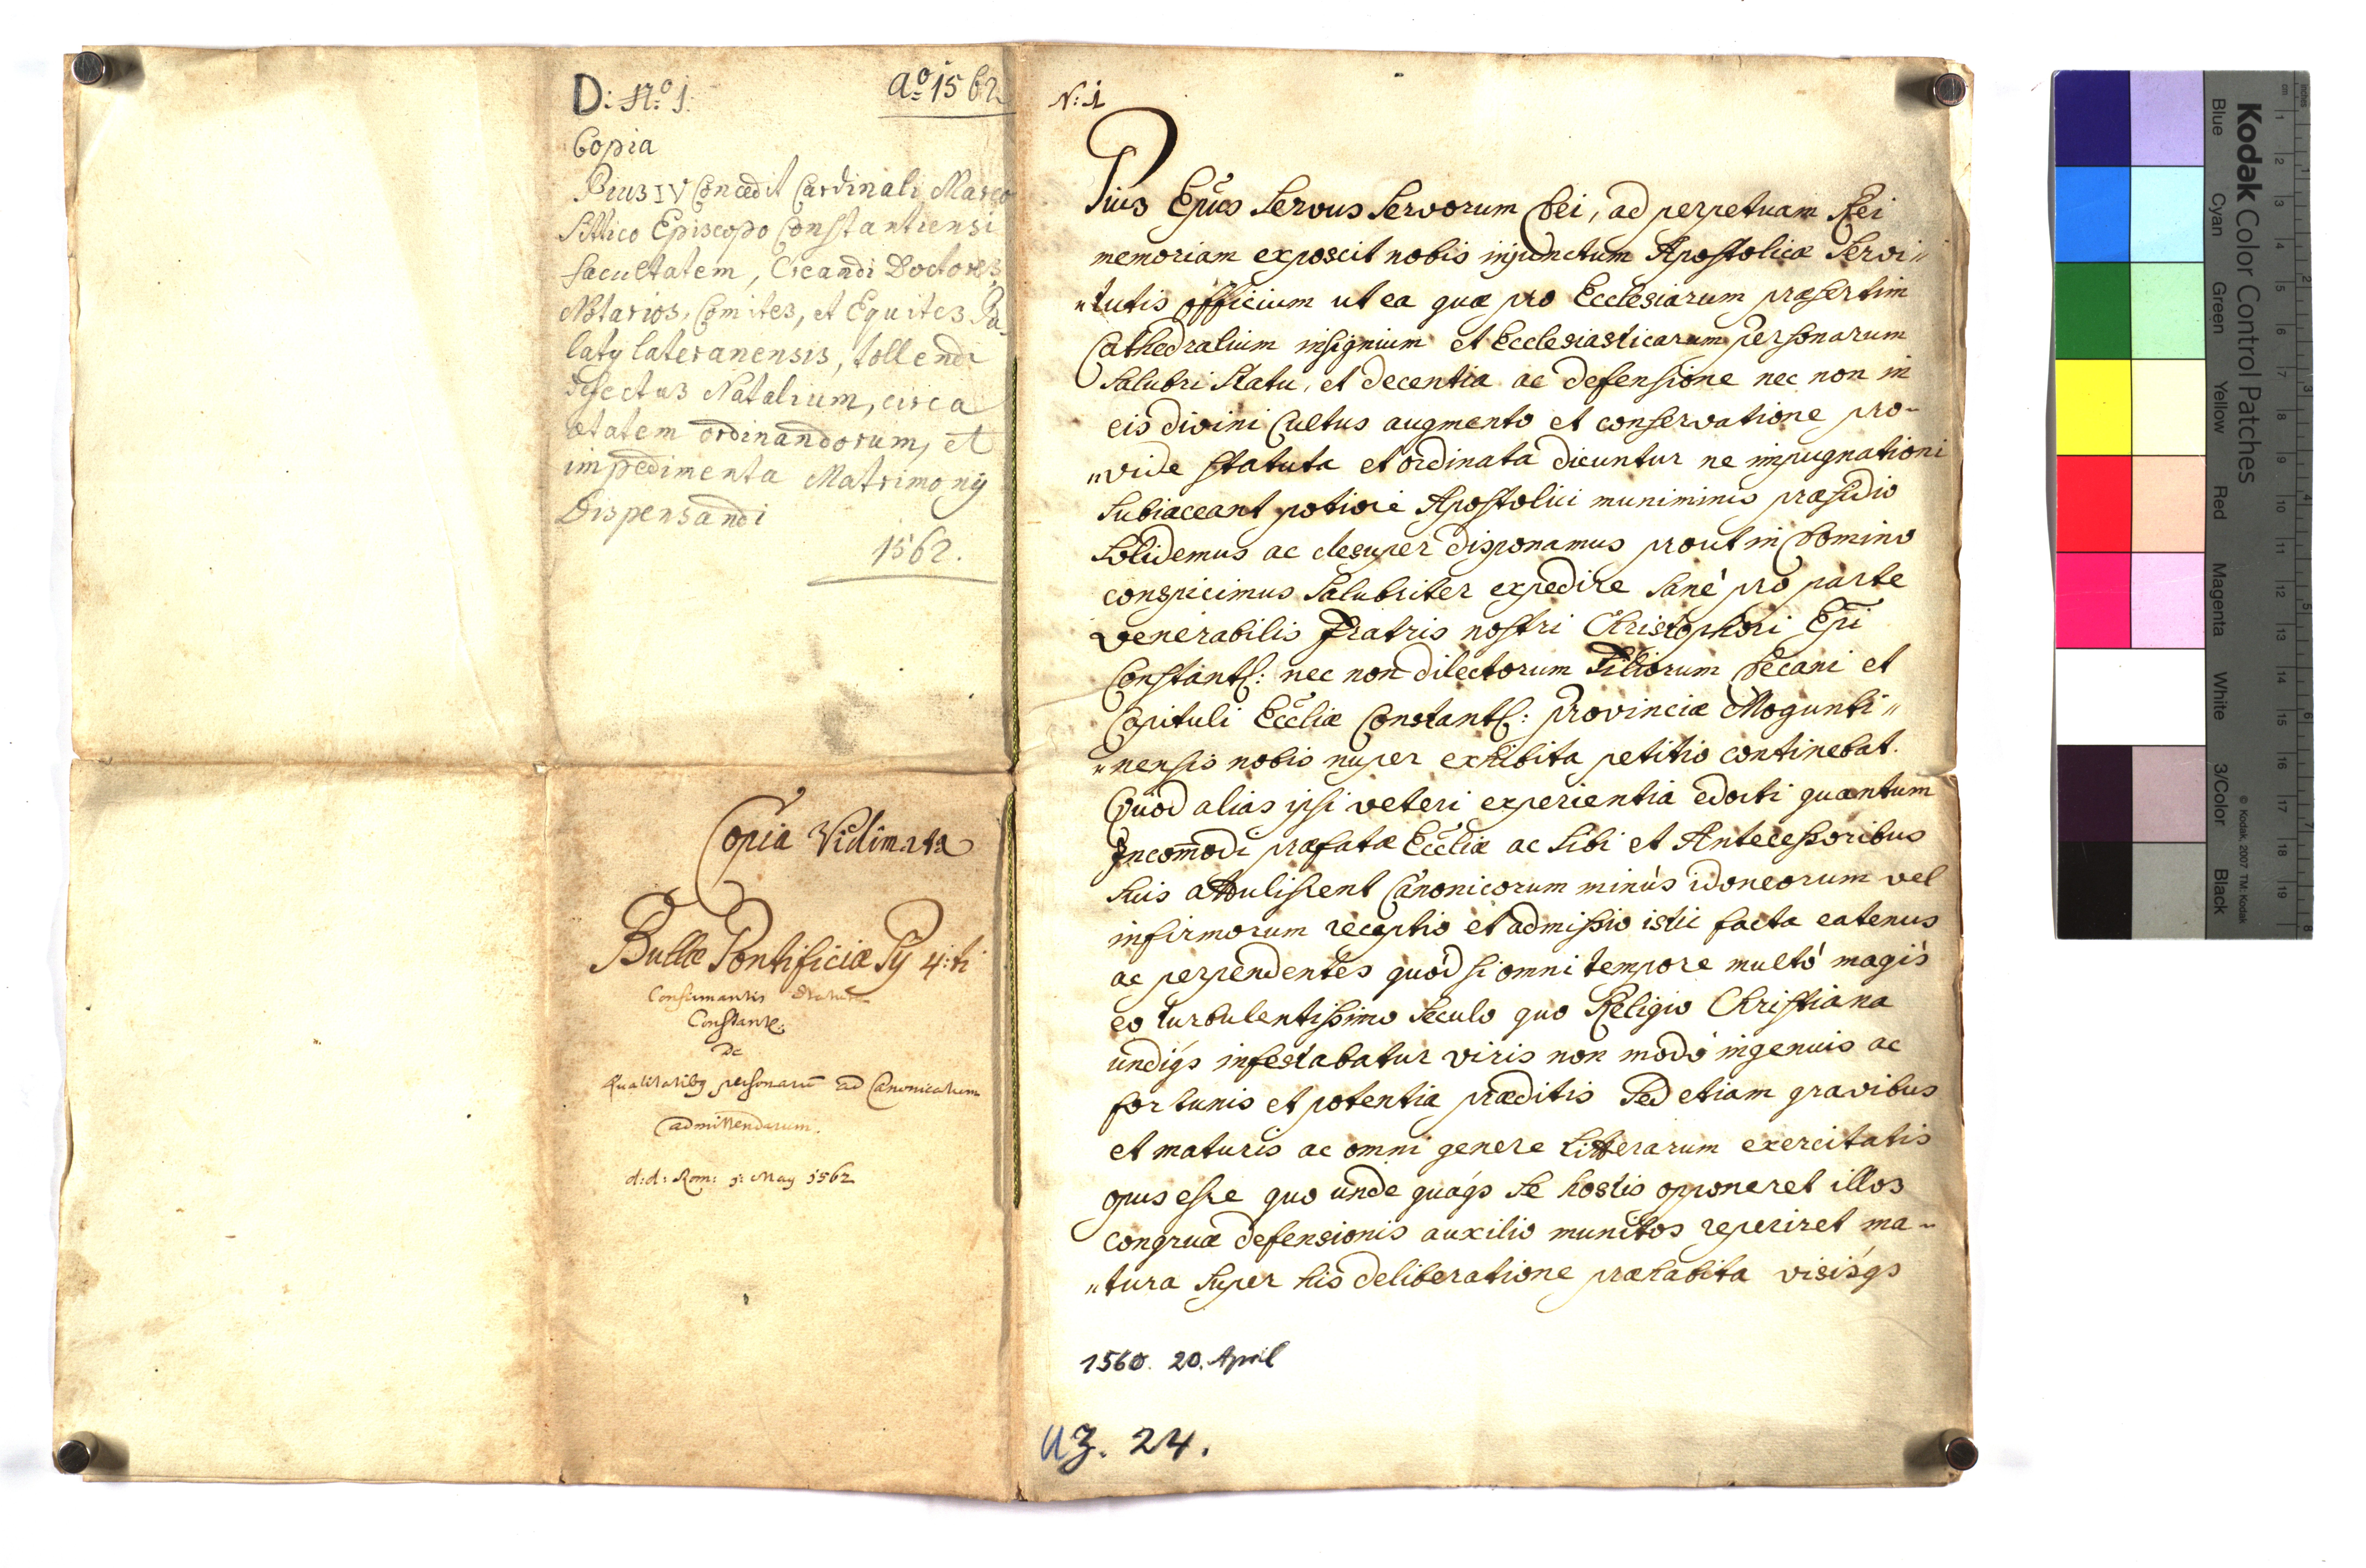 D: No. 1.
Ao. 1562
Copia
Pius IV Concedit Cardinali Marco
Sittico Episcopo Constantiensi
facultatem, Creandi Doctores,
Notarios, Comites, et Equites Pa-
latÿ lateranensis, tollendi
defectus Natalium, circa
ætatem ordinandorum, et
impedimenta Matrimonÿ
Dispensandi
1562.
Copia Vidimata
Bullæ Pontificiæ Pÿ 4:ti
Confirmantis Statuta
Constant:
De
Qualitatibg personarū ad Canonicatum
admittendarum.
d: d: Rom: 1: May 1562
N: 1
Pius Epūs Servus Servorum Dei, ad perpetuam Rei
memoriam exposcit nobis injunctum Apostolicæ Servi„
„tutis officium ut ea quæ pro Ecclesiarum præsertim
Cathedralium insignium et Ecclesiasticarum personarum
Salubri Statu, et decentia ac defensione nec non in
eis divini Cultus augmento et conservatione pro-
„vide statuta et ordinata dicuntur ne impugnationi
Subiaceant potiori Apostolici muniminis præsidio
Solidemus ac desuper disponamus prout in Domino
conspicimus Salubriter expedire Sanè pro parte
venerabilis Fratris nostri Christophori Epī
Constants: nec non dilectorum Filiorum Decani et
Capituli Eccliæ Constants: Provinciæ Mogunti„
„nensis nobis nuper exhibita petitio continebat.
Quod alias ipsi veteri experientia edocti quantum
Incom̄odi præfatæ Eccliæ ac Sibi et Antecessoribus
Suis attulissent Canonicorum minùs idoneorum vel
infirmorum receptio et admissio istic facta eatenus
ac perpendentes quòd si omni tempore multò magis
eo turbulentissimo Seculo quo Religio Christiana
undiq́s infestabatur viris non modò ingenuis ac
fortunis et potentia præditis Sed etiam gravibus
et maturis ac omni genere Litterarum exercitatis
opus esse quo unde quáqs Se hostis opponeret illos
congruæ defensionis auxilio munitos reperiret ma-
„tura Super his deliberatione præhabita visisq́s
1560. 20. April
UZ. 24.
Kodak Color Control Patches
Blue
Cyan
Green
Yellow
Red
Magenta
White
3/Color
Black
© Kodak, 2007 TM: Kodak
cm 1 2 3 4 5 6 7 8 9 10 11 12 13 14 15 16 17 18 19
inches 1 2 3 4 5 6 7 8